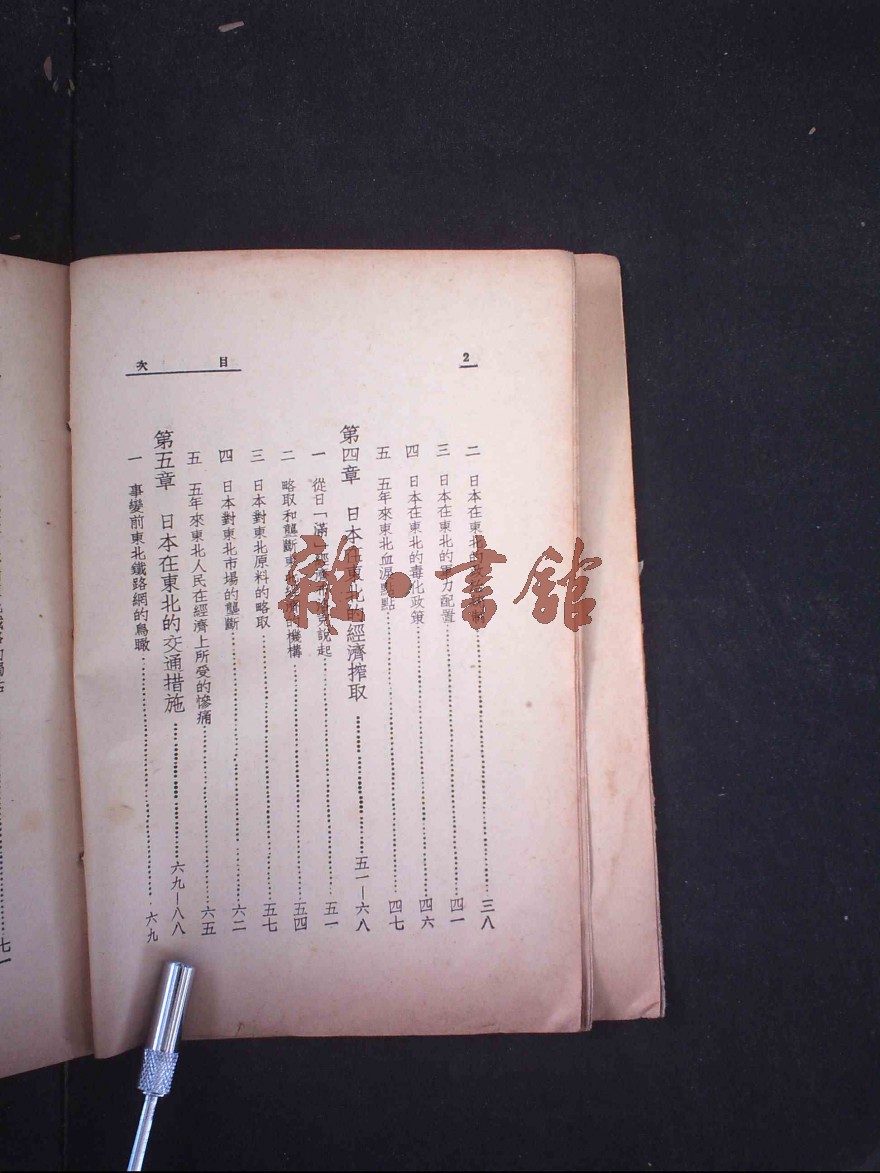 2
目次
二 日本在東北的 三八
三 日本在東北的軍力配置 四一
四 日本在東北的毒化政策 四六
五 五年來東北血淚點點 四七
第四章 日本在東北的經濟搾取 五一—六八
一 從日「滿」經濟 說起 五一
二 略取和壟斷東北經濟的機構 五四
三 日本對東北原料的略取 五七
四 日本對東北市場的壟斷 六二
五 五年來東北人民在經濟上所受的慘痛 六五
第五章 日本在東北的交通措施 六九—八八
一 事變前東北鐵路網的鳥瞰 六九
七一
雜·書館